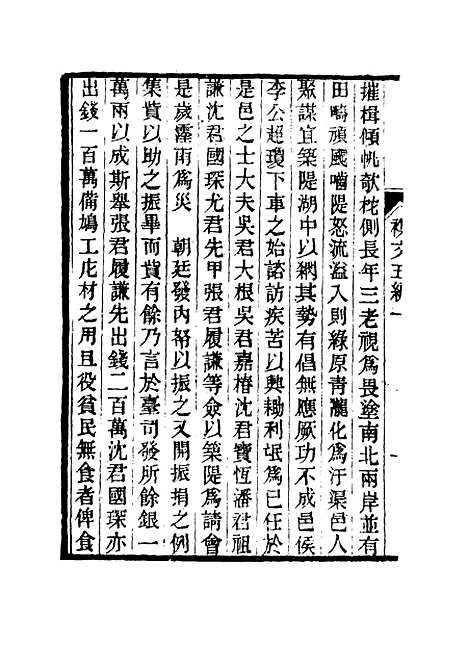 雜文五編一
摧楫傾帆欹柁側長年三老視爲畏塗南北兩岸並有
田疇頑颶嚙隄怒流溢入則綠原靑隴化爲汙渠邑人
聚謀宜築隄湖中以綱其勢有倡無應厥功不成邑侯
李公超瓊下車之始諮訪疾苦以興耡利氓爲已任於
是邑之士大夫吳君大根吳君嘉椿沈君寶恆潘君祖
謙沈君國琛尤君先甲張君履謙等僉以築隄爲請會
是歲霪雨爲災　朝廷發內帑以振之又開振捐之例
集貲以助之振畢而貲有餘乃言於臺司發所餘銀一
萬兩以成斯舉張君履謙先出錢二百萬沈君國琛亦
出錢一百萬備鳩工庀材之用且役貧民無食者俾食